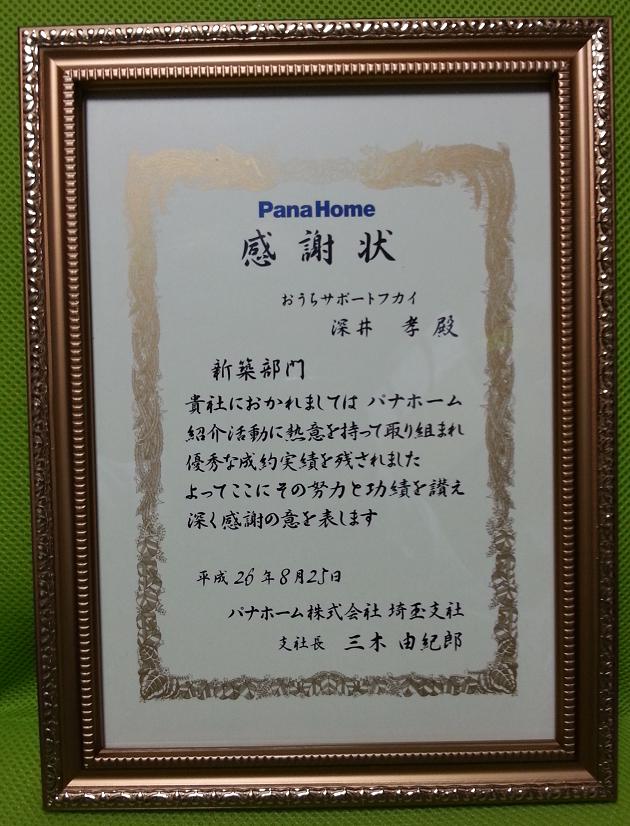 PanaHome
感謝状
おうちサポートフカイ
深井 孝 殿
新築部門
貴社におかれましては パナホーム
紹介活動に熱意を持って取り組まれ
優秀な成約実績を残されました
よってここにその努力と功績を讃え
深く感謝の意を表します
平成26年8月25日
パナホーム株式会社 埼玉支社
支社長 三木 由紀郎